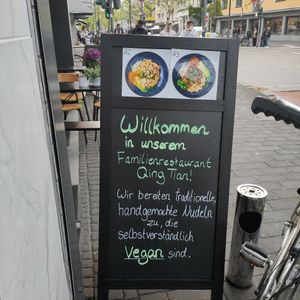 Willkommen
in unserem
Familienrestaurant
Qing Tian!
Wir bereiten traditionelle,
handgemachte Nudeln
zu, die
selbstverständlich
Vegan sind.